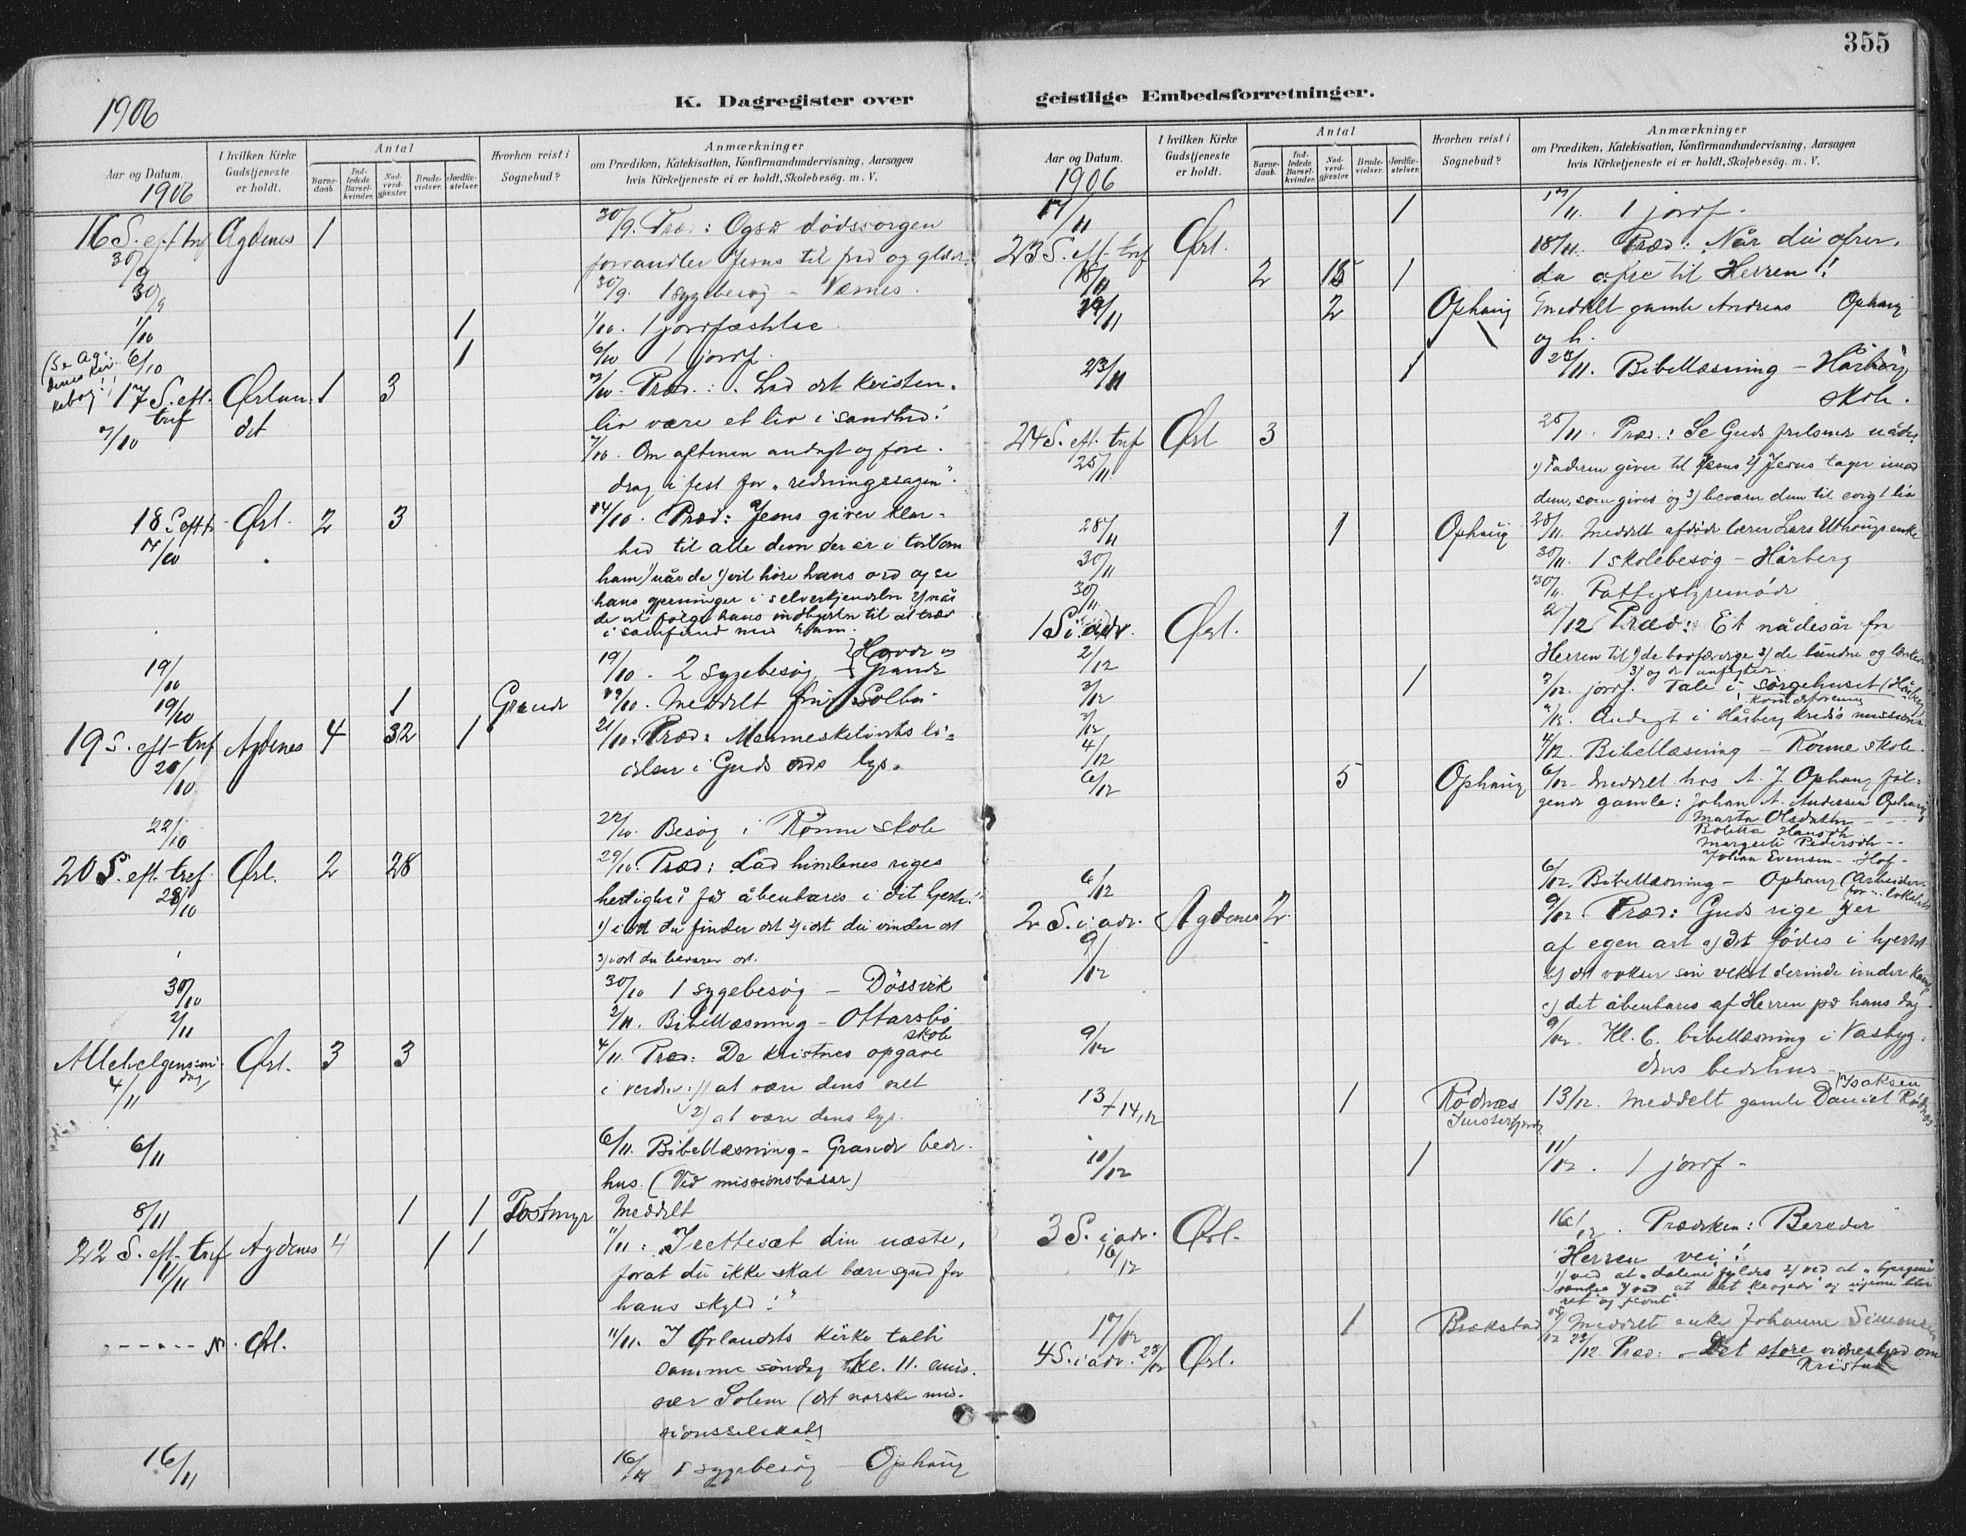 355
1906
K. Dagregister over geistlige Embedsforretninger.
Aar og Datum.
1906
I hvilken Kirke Gudstjeneste er holdt.
Antal
Barnedaab.
Indledede Barselkvinder.
Nadverdgjæster.
Brudevielser.
Jordfæstelser.
Hvorhen reist i Sognebud?
Anmærkninger
om Prædiken, Katekisation, Konfirmandundervisning, Aarsagen
hvis Kirketjeneste ei er holdt, Skolebesög. m. V.
16 S. eft. tref Agdenes 1 30/9. Præd: Også dødssorgen
30/9 forvandler Jesus til fred og glæde.
30/9 30/9. 1 sygebesøg - Værnes.
1/10 1 1/10. 1 jordfæstelse
6/10 1 6/10 1 jordf.
17 S. eft. tref Ørlandet 1 3 7/10. Præd.: Lad det kristen.
7/10 liv være et liv i sandhed!
7/10. Om aftenen andagt og fore.
drag i fest for "redningssagen".
18 S. eft. tr. Ørl. 2 3 14/10. Præd: Jesus giver klar-
hed til alle dem der er i tvil om
ham, når de 1) vil høre hans ord og se
hans gjerninger i selverkjendelse 2) når
de vil følge hans indbydelse til at træde
i samfund med ham.
19/10 19/10. 2 sygebesøg { Hovde og Grande
19/10 1 Grande 19/10. Meddelt fru Solbu
19 S. eft. tref Agdenes 4 32 1 21/10. Præd: Menneskelivets li-
21/10 delser i Guds ords lys.
22/10 22/10. Besøg i Rönne skole
20 S. eft. tref. Ørl. 2 28 Præd: Lad himlenes riges
28/10 herlighed få åbenbares i dit hjerte!
1) i det du finder det 2) i det du vinder det
3) i det du bevarer det.
30/10 30/10 1 sygebesøg - Døssvik
2/11 2/11. Bibellæsning - Ottarsbo skole
Allehelgensdag Ørl. 3 3 4/11. Præd: De kristnes opgave
4/11 i verden: 1) at være dens salt
2) at være dens lys.
6/11 6/11. Bibellæsning - Grande bede-
hus. (Ved missionsbasar)
8/11 1 1 Postmyr Meddelt
22 S. eft. tref Agdenes 4 1 1 11/11: "Irettesæt din næste,
11/11 forat du ikke skal bære synd for
hans skyld!"
Ørl. 11/11. I Ørlandets kirke talte
samme søndag kl. 11. emis.
sær Solem (det norske mis-
sionsselskab)
16/11 16/11 1 sygebesøg - Ophaug
Aar og Datum.
1906
I hvilken Kirke Gudstjeneste er holdt.
Antal
Barnedaab.
Indledede Barselkvinder.
Nadverdgjæster.
Brudevielser.
Jordfæstelser.
Hvorhen reist i Sognebud?
Anmærkninger
om Prædiken, Katekisation, Konfirmandundervisning, Aarsagen
hvis Kirketjeneste ei er holdt, Skolebesög. m. V.
17/11 1 17/11. 1 jordf.
23 S. eft. tref Ørl. 18/11. Præd: Når du ofrer,
18/11 2 15 1 da ofre til Herren!!
2 Ophaug Meddelt gamle Andreas Ophaug
og h.
23/11 1 23/11. Bibellæsning - Hårberg
skole.
24 S. eft. tref Ørl 3 25/11. Præd.: Se Guds frelsende nåde.
25/11 1) Faderen giver til Jesus 2) Jesus tager imod
dem, som gives og 3) bevarer dem til evigt liv
28/11 1 Ophaug 28/11. Meddelt afdøde lærer Lars Uthaugs enke
30/11 30/11. 1 skolebesøg - Hårberg
30/11 30/11 Fattigstyremøde
1 S. i adv. Ørl. 2/12 Præd: Et nådesår fra
2/12 Herren til 1) de botfærdige 2) de bundne og lænkede
3) og de anfegtede
3/12 1 3/12. jordf. Tale i sørgehuset (Hårberg)
3/12 3/12. Andagt i Hårberg kreds missions kvindeforening
4/12 4/12. Bibellæsning - Rönne skole.
6/12 5 Ophaug 6/12. Meddelt hos A. J. Ophaug føl-
gende gamle: Johan A. Andersen Ophaug
Marta Olsdatter
Boletta Hansdtr
Margrete Pedersdtr
Johan Evensen - Hof -
6/12 6/12. Bibellæsning - Ophaug (Arbeider-
for. lokalet)
2 S. i adv. Agdenes 2 9/12 Præd: Guds rige er
9/12 af egen art a) det fødes i hjertet
b) det vokser sin vekst derinde under kamp
c) det åbenbares af Herren på hans dag.
9/12 9/12. Kl. 6. bibellæsning i Vasbyg.
dens bedehus
13/-14/12 1 Rødnæs 13/12. Meddelt gamle Daniel Isaksen Rødnæs
1 11/12. 1 jordf.
3 S. i adv. Ørl. 16/12. Prædiken: Bereder
16/12 Herren vei!
1) ved at "dalene fyldes 2) ved at "bjergene
sænkes 3) ved at det kroged og ujevne blir
ret og jevnt"
17/12 1 Brækstad Meddelt enke Johanne Simonsen
4 S. i adv. 23/12 Ørl. 23/12. Præd: Det store vidnesbyrd om
Kristus